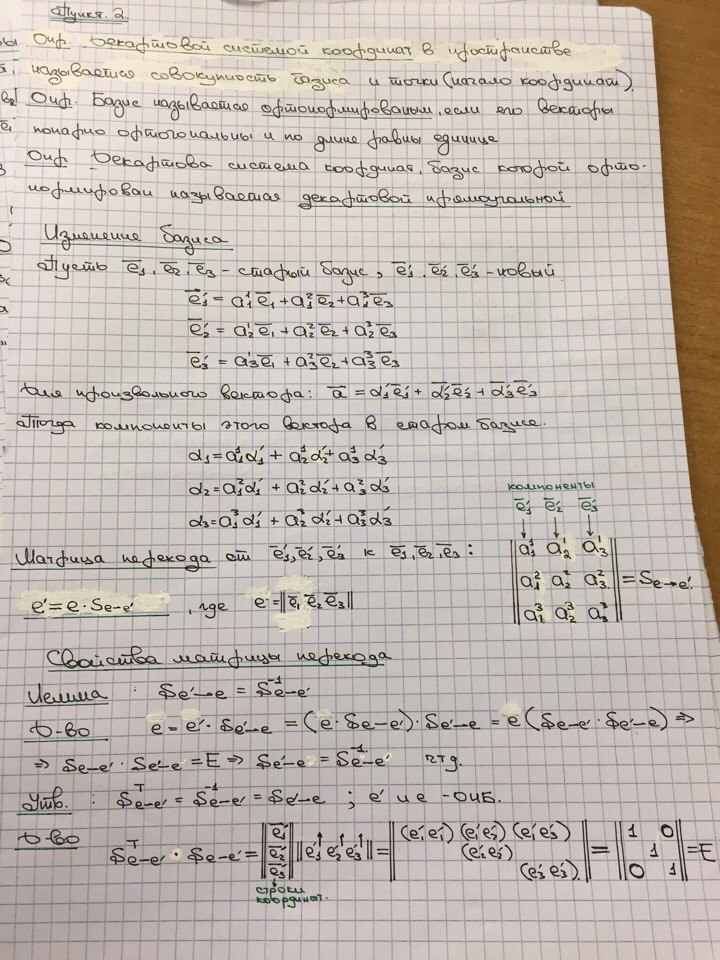 Пункт 2.
ы Опр. Декартовой системой координат в пространстве
называется совокупность базиса и точки (начало координат).
Опр. Базис называется ортонормированым, если его векторы
попарно ортогональны и по длине равны единице
Опр. Декартова система координат, базис которой орто-
нормирован называется декартовой прямоугольной
Изменение базиса
Пусть e̅₁, e̅₂, e̅₃ - старый базис, e̅₁′, e̅₂′, e̅₃′ - новый
e̅₁′ = a₁¹e̅₁ + a₁²e̅₂ + a₁³e̅₃
e̅₂′ = a₂¹e̅₁ + a₂²e̅₂ + a₂³e̅₃
e̅₃′ = a₃¹e̅₁ + a₃²e̅₂ + a₃³e̅₃
Для произвольного вектора: a̅ = α₁′e̅₁′ + α₂′e̅₂′ + α₃′e̅₃′
Тогда компоненты этого вектора в старом базисе.
α₁ = a₁¹α₁′ + a₂¹α₂′ + a₃¹α₃′
α₂ = a₁²α₁′ + a₂²α₂′ + a₃²α₃′
α₃ = a₁³α₁′ + a₂³α₂′ + a₃³α₃′
компоненты
e̅₁′ e̅₂′ e̅₃′
↓ ↓ ↓
Матрица перехода от e̅₁′, e̅₂′, e̅₃′ к e̅₁, e̅₂, e̅₃ : ‖a₁¹ a₂¹ a₃¹‖
‖a₁² a₂² a₃²‖ = Se→e′
‖a₁³ a₂³ a₃³‖
e′ = e · Se–e′ , где e = ‖e̅₁ e̅₂ e̅₃‖
Свойства матрицы перехода
Лемма : Se′–e = S⁻¹e–e′
Д-во e = e′ · Se′–e = (e · Se–e′) · Se′–e = e (Se–e′ · Se′–e) ⇒
⇒ Se–e′ · Se′–e = E ⇒ Se′–e = S⁻¹e–e′ чтд.
Утв. : Sᵀe–e′ = S⁻¹e–e′ = Se′–e ; e′ и e - ОНБ.
Д-во Sᵀe–e′ · Se–e′ = ‖e̅₁′‖ ‖e₁′↑ e₂′↑ e₃′↑‖ = ‖(e₁′e₁′) (e₁′e₂′) (e₁′e₃′)‖ = ‖1 0‖ = E
‖e̅₂′‖ ‖(e₂′e₂′)‖ ‖1‖
‖e̅₃′‖ ‖(e₃′e₃′)‖ ‖0 1‖
строки
координат.